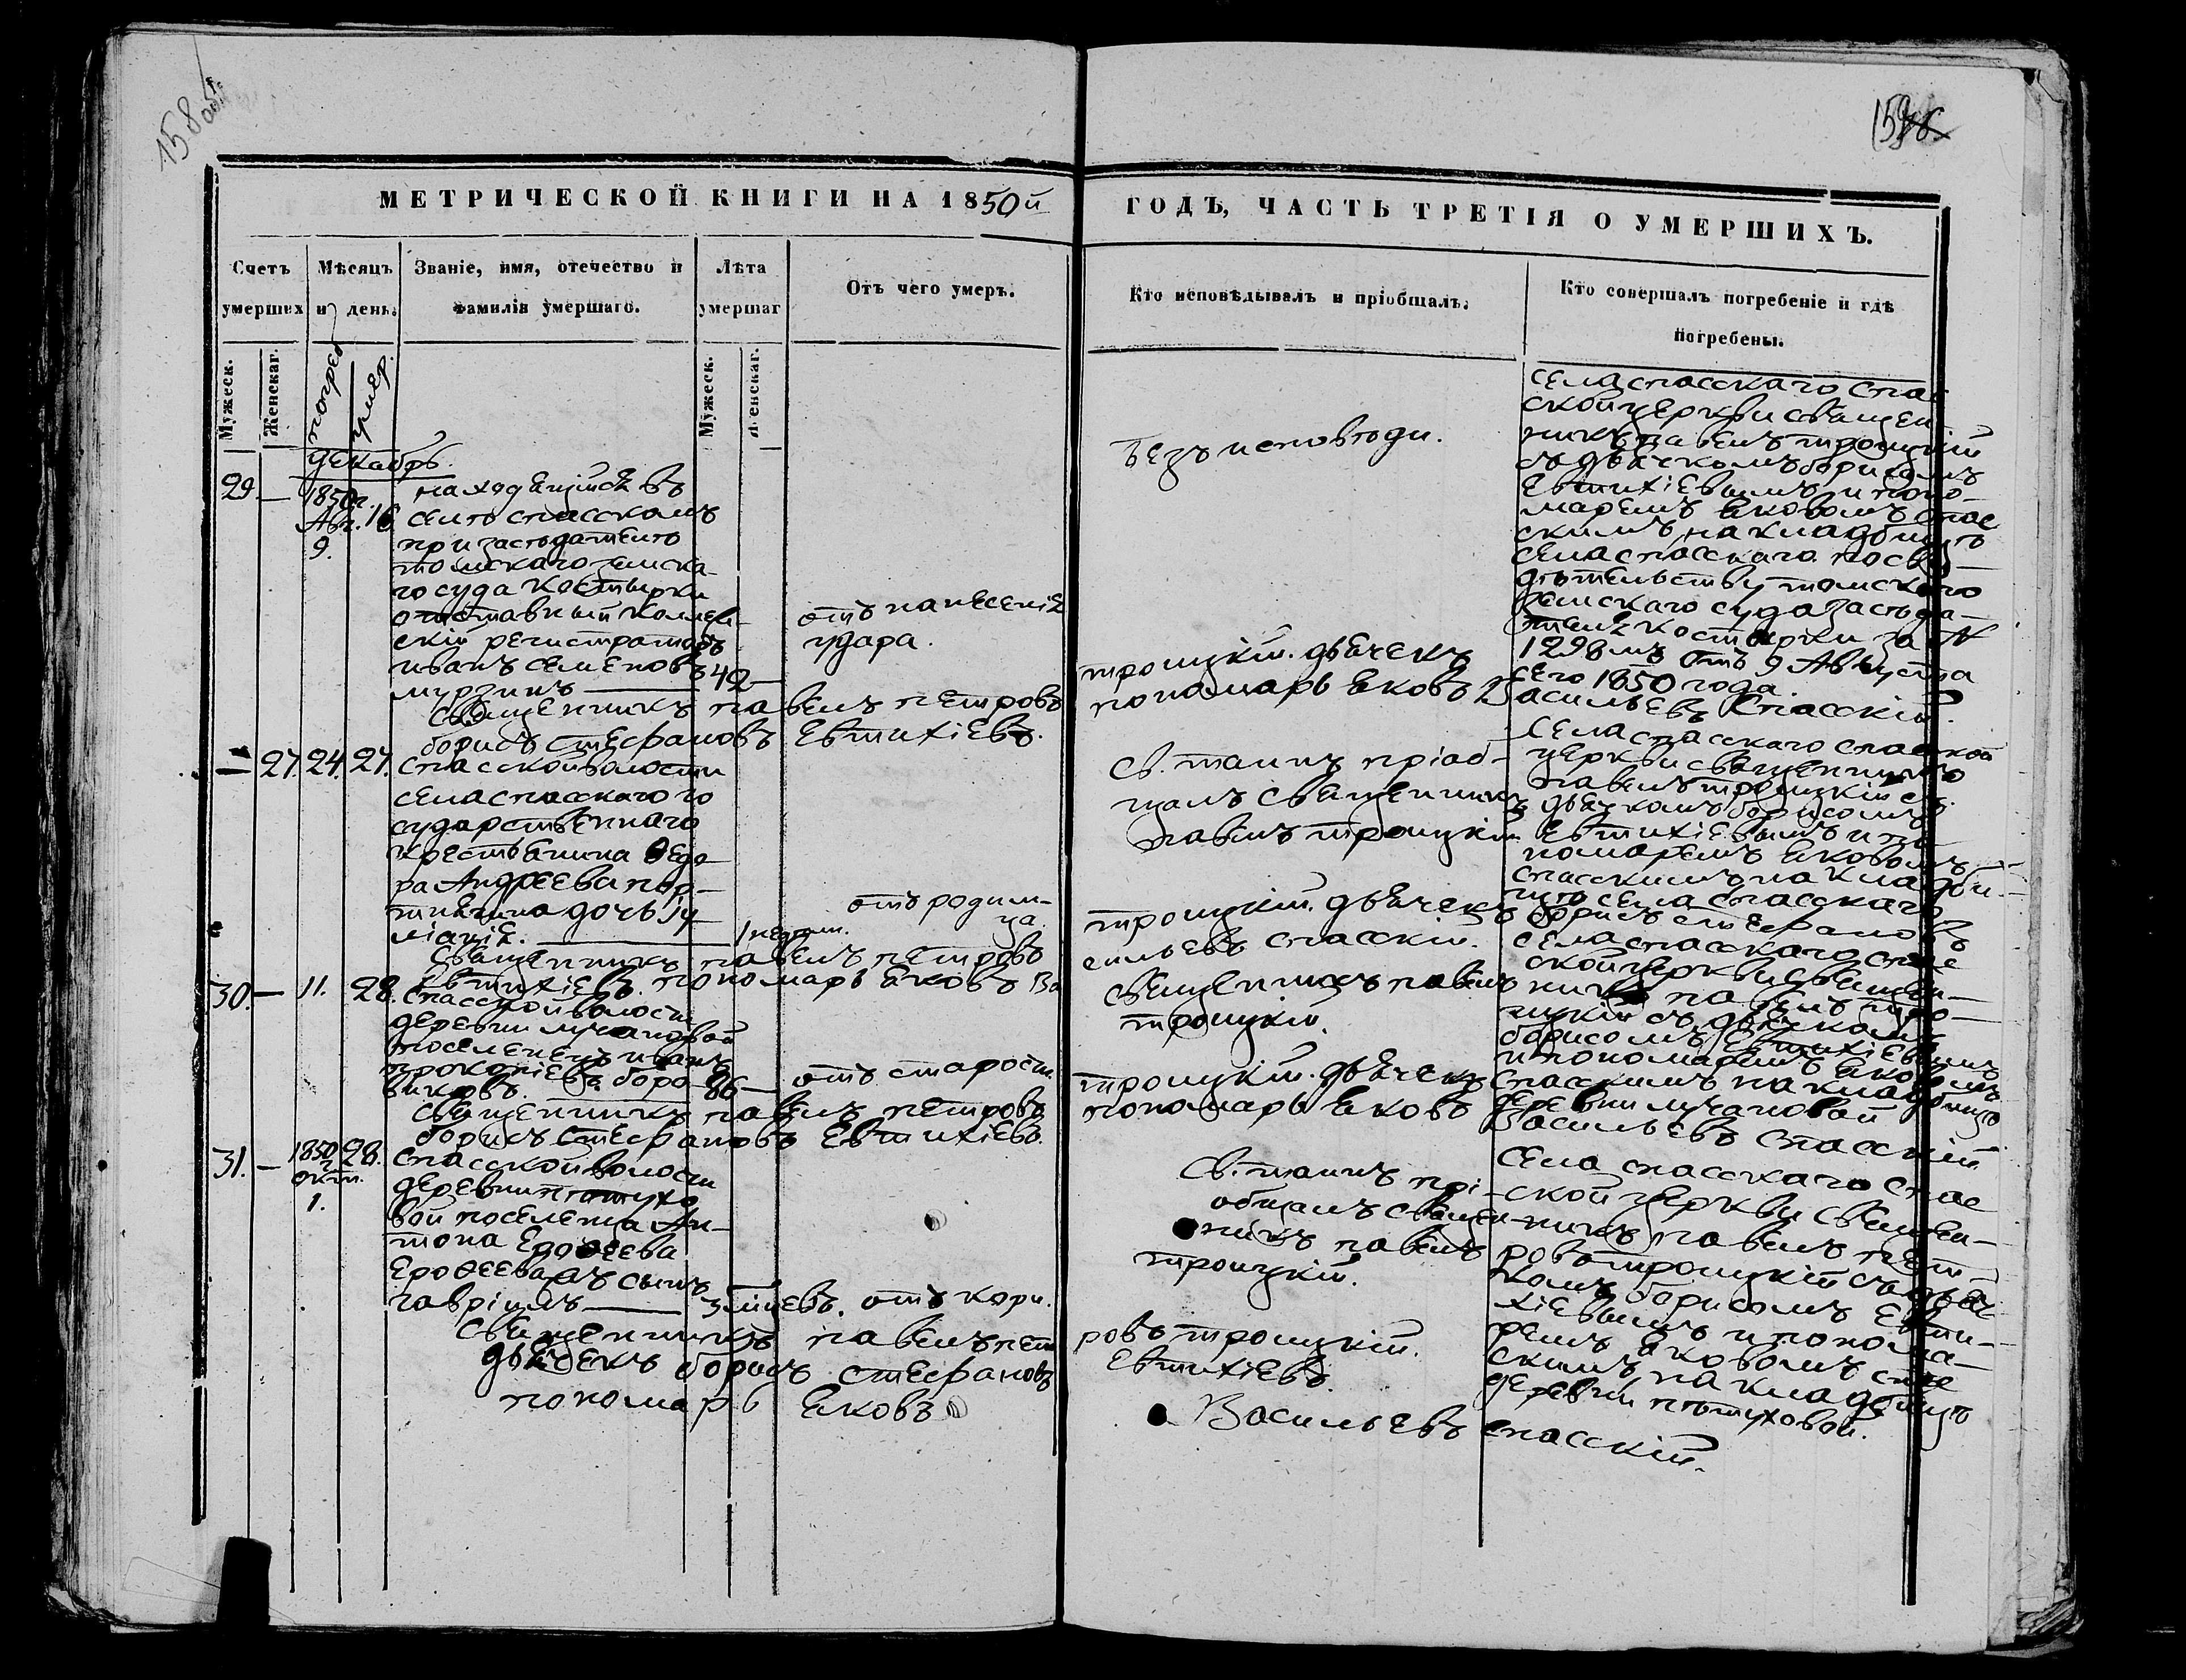 158 об.
159
МЕТРИЧЕСКОЙ КНИГИ НА 1850й
ГОДЪ, ЧАСТЬ ТРЕТІЯ О УМЕРШИХЪ.
Счетъ умерших
Мѣсяцъ и день.
Званіе, имя, отечество и фамилія умершаго.
Лѣта умершаг
Отъ чего умеръ.
Кто исповѣдывалъ и пріобщалъ.
Кто совершалъ погребеніе и гдѣ погребены.
Мужеск.
Женскаг.
погреб
умер.
Мужеск.
Женскаг.
декабрь.
29 — 1850г. Авг. 9. 16
находящійся въ
селѣ спасскомъ
при засѣдателѣ
томскаго земска
го суда Костырки
отставный коллеж
скій регистраторъ
иванъ семеновъ
мурзинъ — 42 —
отъ нанесенія
удара.
Безъ исповѣди.
села спасскаго спас
ской церкви священ
никъ павелъ троицкій
съ дьячкомъ борисомъ
Евтихіевымъ и поно-
маремъ Яковомъ спас
скимъ на кладбищѣ
села спасскаго по сви-
дѣтельству томскаго
земскаго суда засѣда-
теля костырки за №
1298мъ отъ 9 Августа
сего 1850 года.
священникъ павелъ петровъ троицкій. дьячекъ
борисъ стефановъ Евтихіевъ. пономарь Яковъ Васильевъ Спасскій.
— 27. 24. 27.
спасской волости
села спасскаго го
сударственнаго
крестьянина Ѳедо
ра Андреева пор-
тнягина дочь іу
ліанія. — 1 недѣли.
отъ родим-
ца.
св. таинъ пріоб-
щалъ священникъ
павелъ троицкій
села спасскаго спасской
церкви священникъ
павелъ троицкій съ
дьячкомъ борисомъ
Евтихіевымъ и по
номаремъ Яковомъ
спасскимъ на кладби-
щѣ села спасскаго
священникъ павелъ петровъ троицкій. дьячекъ борисъ стефановъ
Евтихіевъ. пономарь Яковъ Васильевъ спасскій.
30. — 11. 28.
спасской волости
деревни лучановой
поселенецъ иванъ
прокопіевъ боро
виковъ. 86 —
отъ старости
священникъ павелъ
троицкій.
села спасскаго спас
ской церкви священ-
никъ павелъ тро-
ицкій съ дьячкомъ
борисомъ Евтихіевымъ
и пономаремъ Яковомъ
спасскимъ на кладбищѣ
деревни лучановой
священникъ павелъ петровъ троицкій. дьячекъ
борисъ стефановъ Евтихіевъ. пономарь Яковъ Васильевъ спасскій
31. — 1850 г. окт. 1. 28.
спасской волости
деревни пѣтухо
вой поселенца Ан-
тона Ерофеева
Ерофеева сынъ
гавріилъ — 3 мѣсяцевъ. отъ кори.
Св. таинъ прі-
общалъ священ-
никъ павелъ
троицкій.
села спасскаго спас
ской церкви священ-
никъ павелъ пет
ровъ троицкій съ дьяч
комъ борисомъ Евти-
хіевымъ и понома-
ремъ Яковомъ спас
скимъ на кладбищѣ
деревни пѣтуховой.
священникъ павелъ пет ровъ троицкій.
дьячекъ борисъ стефановъ Евтихіевъ.
пономарь Яковъ Васильевъ спасскій.